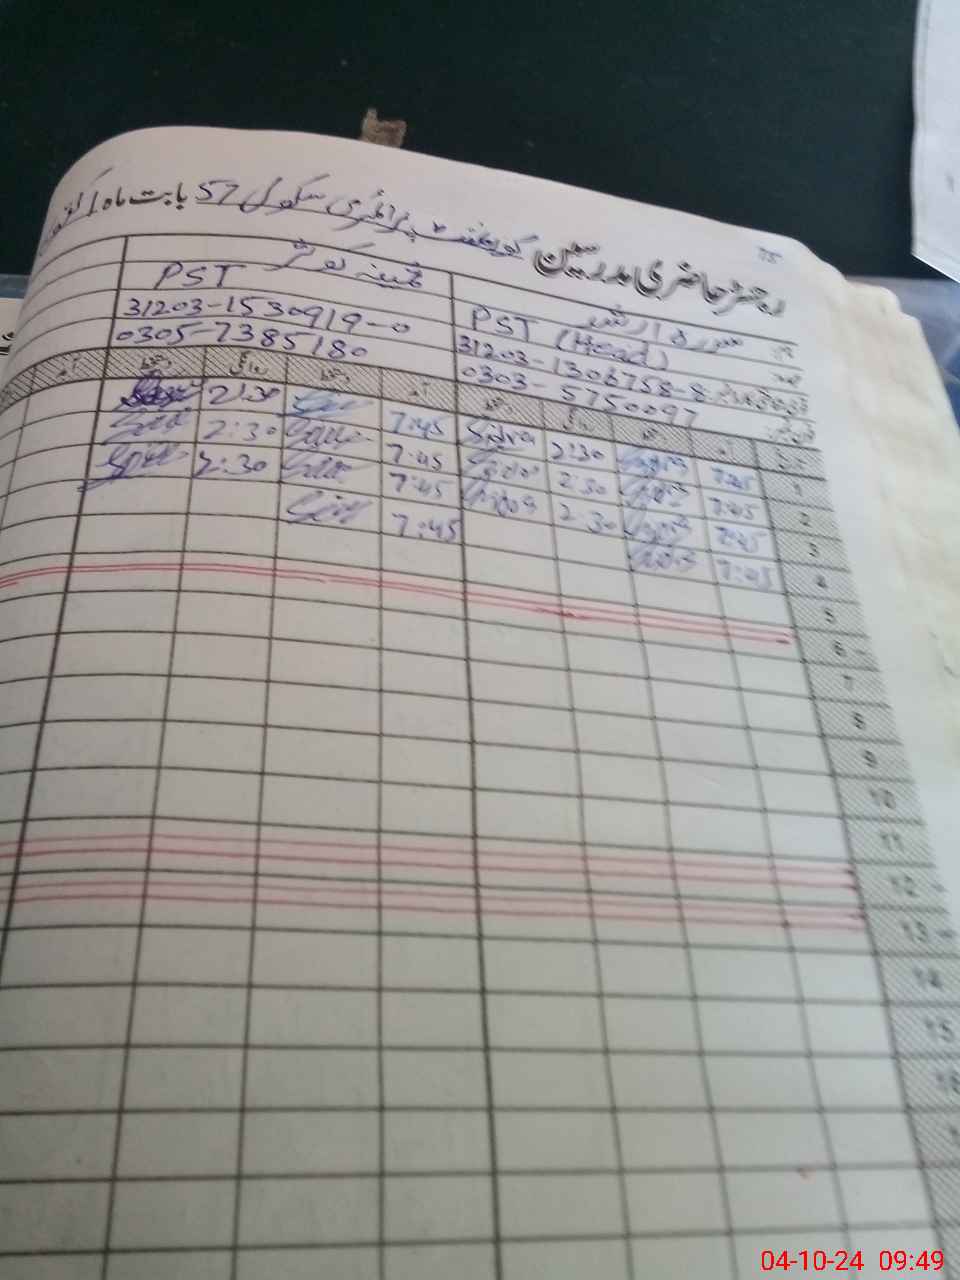 رجسٹر حاضری مدرسین گورنمنٹ پرائمری سکول 57 بابت ماہ اکتوبر
سدرہ ارشد
PST (Head)
31203-1306758-8
0303-5750097
ثمینہ کوثر
PST
31203-1530919-0
0305-7385180
آمد دستخط روانگی دستخط آمد دستخط روانگی دستخط آمد
1 7:45 2:30 Sidra 7:45 2:30
2 7:45 2:30 7:45 2:30
3 7:45 2:30 7:45 2:30
4 7:45 7:45
5
6
7
8
9
10
11
12
13
14
15
16
04-10-24 09:49